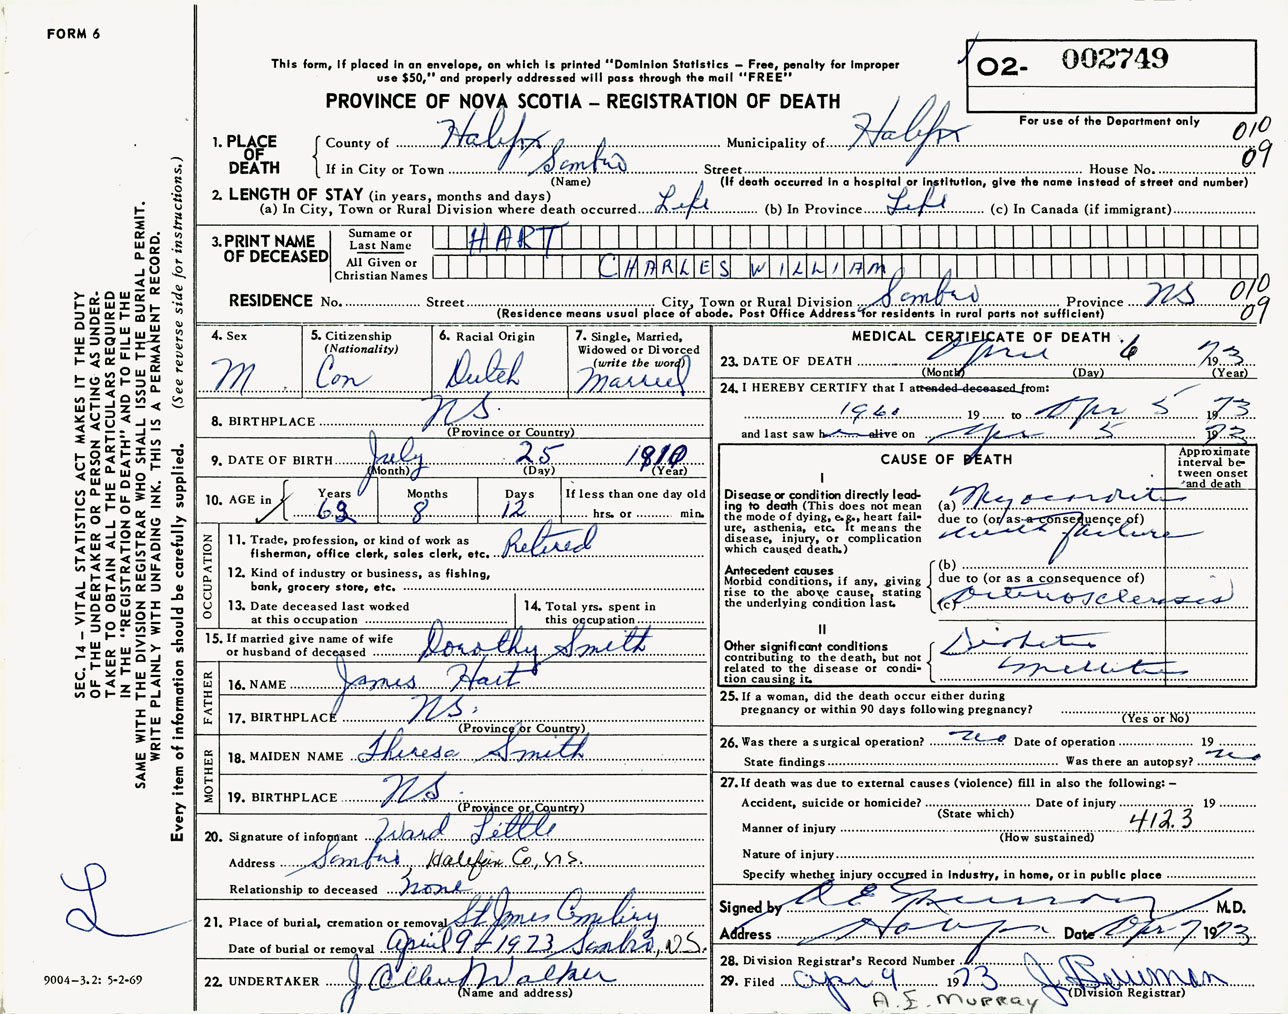 FORM 6
This form, if placed in an envelope, on which is printed "Dominion Statistics – Free, penalty for improper
use $50," and properly addressed will pass through the mail "FREE"
O2- 002749
PROVINCE OF NOVA SCOTIA – REGISTRATION OF DEATH
For use of the Department only
010
09
1. PLACE OF DEATH
County of Halifax Municipality of Halifax
If in City or Town Sambro Street House No.
(Name) (If death occurred in a hospital or institution, give the name instead of street and number)
2. LENGTH OF STAY (in years, months and days)
(a) In City, Town or Rural Division where death occurred Life (b) In Province Life (c) In Canada (if immigrant)
3. PRINT NAME OF DECEASED
Surname or Last Name HART
All Given or Christian Names CHARLES WILLIAM
RESIDENCE No. Street City, Town or Rural Division Sambro Province NS
010
09
(Residence means usual place of abode. Post Office Address for residents in rural parts not sufficient)
4. Sex
M
5. Citizenship
(Nationality)
Can
6. Racial Origin
Dutch
7. Single, Married,
Widowed or Divorced
(write the word)
Married
8. BIRTHPLACE NS.
(Province or Country)
9. DATE OF BIRTH July 25 1910
(Month) (Day) (Year)
10. AGE in
Years Months Days If less than one day old
62 8 12 hrs. or min.
OCCUPATION
11. Trade, profession, or kind of work as
fisherman, office clerk, sales clerk, etc. Retired
12. Kind of industry or business, as fishing,
bank, grocery store, etc.
13. Date deceased last worked
at this occupation
14. Total yrs. spent in
this occupation
15. If married give name of wife
or husband of deceased Dorothy Smith
FATHER
16. NAME James Hart
17. BIRTHPLACE NS.
(Province or Country)
MOTHER
18. MAIDEN NAME Theresa Smith
19. BIRTHPLACE NS
(Province or Country)
20. Signature of informant Ward Little
Address Sambro, Halifax Co, N.S.
Relationship to deceased none
21. Place of burial, cremation or removal St James Cemetery
Date of burial or removal April 9th 1973 Sambro, N.S.
22. UNDERTAKER J. Allen Walker
(Name and address)
MEDICAL CERTIFICATE OF DEATH
23. DATE OF DEATH April 6 1973
(Month) (Day) (Year)
24. I HEREBY CERTIFY that I attended deceased from:
1960 19 to Apr 5 1973
and last saw h alive on Apr 5 1973
CAUSE OF DEATH
Approximate
interval be-
tween onset
and death
I
Disease or condition directly lead-
ing to death (This does not mean
the mode of dying, e.g., heart fail-
ure, asthenia, etc. It means the
disease, injury, or complication
which caused death.)
(a) Myocarditis
due to (or as a consequence of)
with failure
Antecedent causes
Morbid conditions, if any, giving
rise to the above cause, stating
the underlying condition last.
(b)
due to (or as a consequence of)
(c) Arteriosclerosis
II
Other significant conditions
contributing to the death, but not
related to the disease or condi-
tion causing it.
Diabetes
Mellitus
25. If a woman, did the death occur either during
pregnancy or within 90 days following pregnancy?
(Yes or No)
26. Was there a surgical operation? no Date of operation 19
State findings Was there an autopsy? no
27. If death was due to external causes (violence) fill in also the following: –
Accident, suicide or homicide? Date of injury 19
(State which)
Manner of injury 412.3
(How sustained)
Nature of injury
Specify whether injury occurred in industry, in home, or in public place
Signed by A E Murray M.D.
Address Date Apr 7 1973
28. Division Registrar's Record Number
29. Filed Apr 9 1973 J. Bowman
(Division Registrar)
A.E. MURRAY
SEC. 14 – VITAL STATISTICS ACT MAKES IT THE DUTY
OF THE UNDERTAKER OR PERSON ACTING AS UNDER-
TAKER TO OBTAIN ALL THE PARTICULARS REQUIRED
IN THE "REGISTRATION OF DEATH" AND TO FILE THE
SAME WITH THE DIVISION REGISTRAR WHO SHALL ISSUE THE BURIAL PERMIT.
WRITE PLAINLY WITH UNFADING INK. THIS IS A PERMANENT RECORD.
Every item of information should be carefully supplied. (See reverse side for instructions.)
L
9004–3.2: 5-2-69